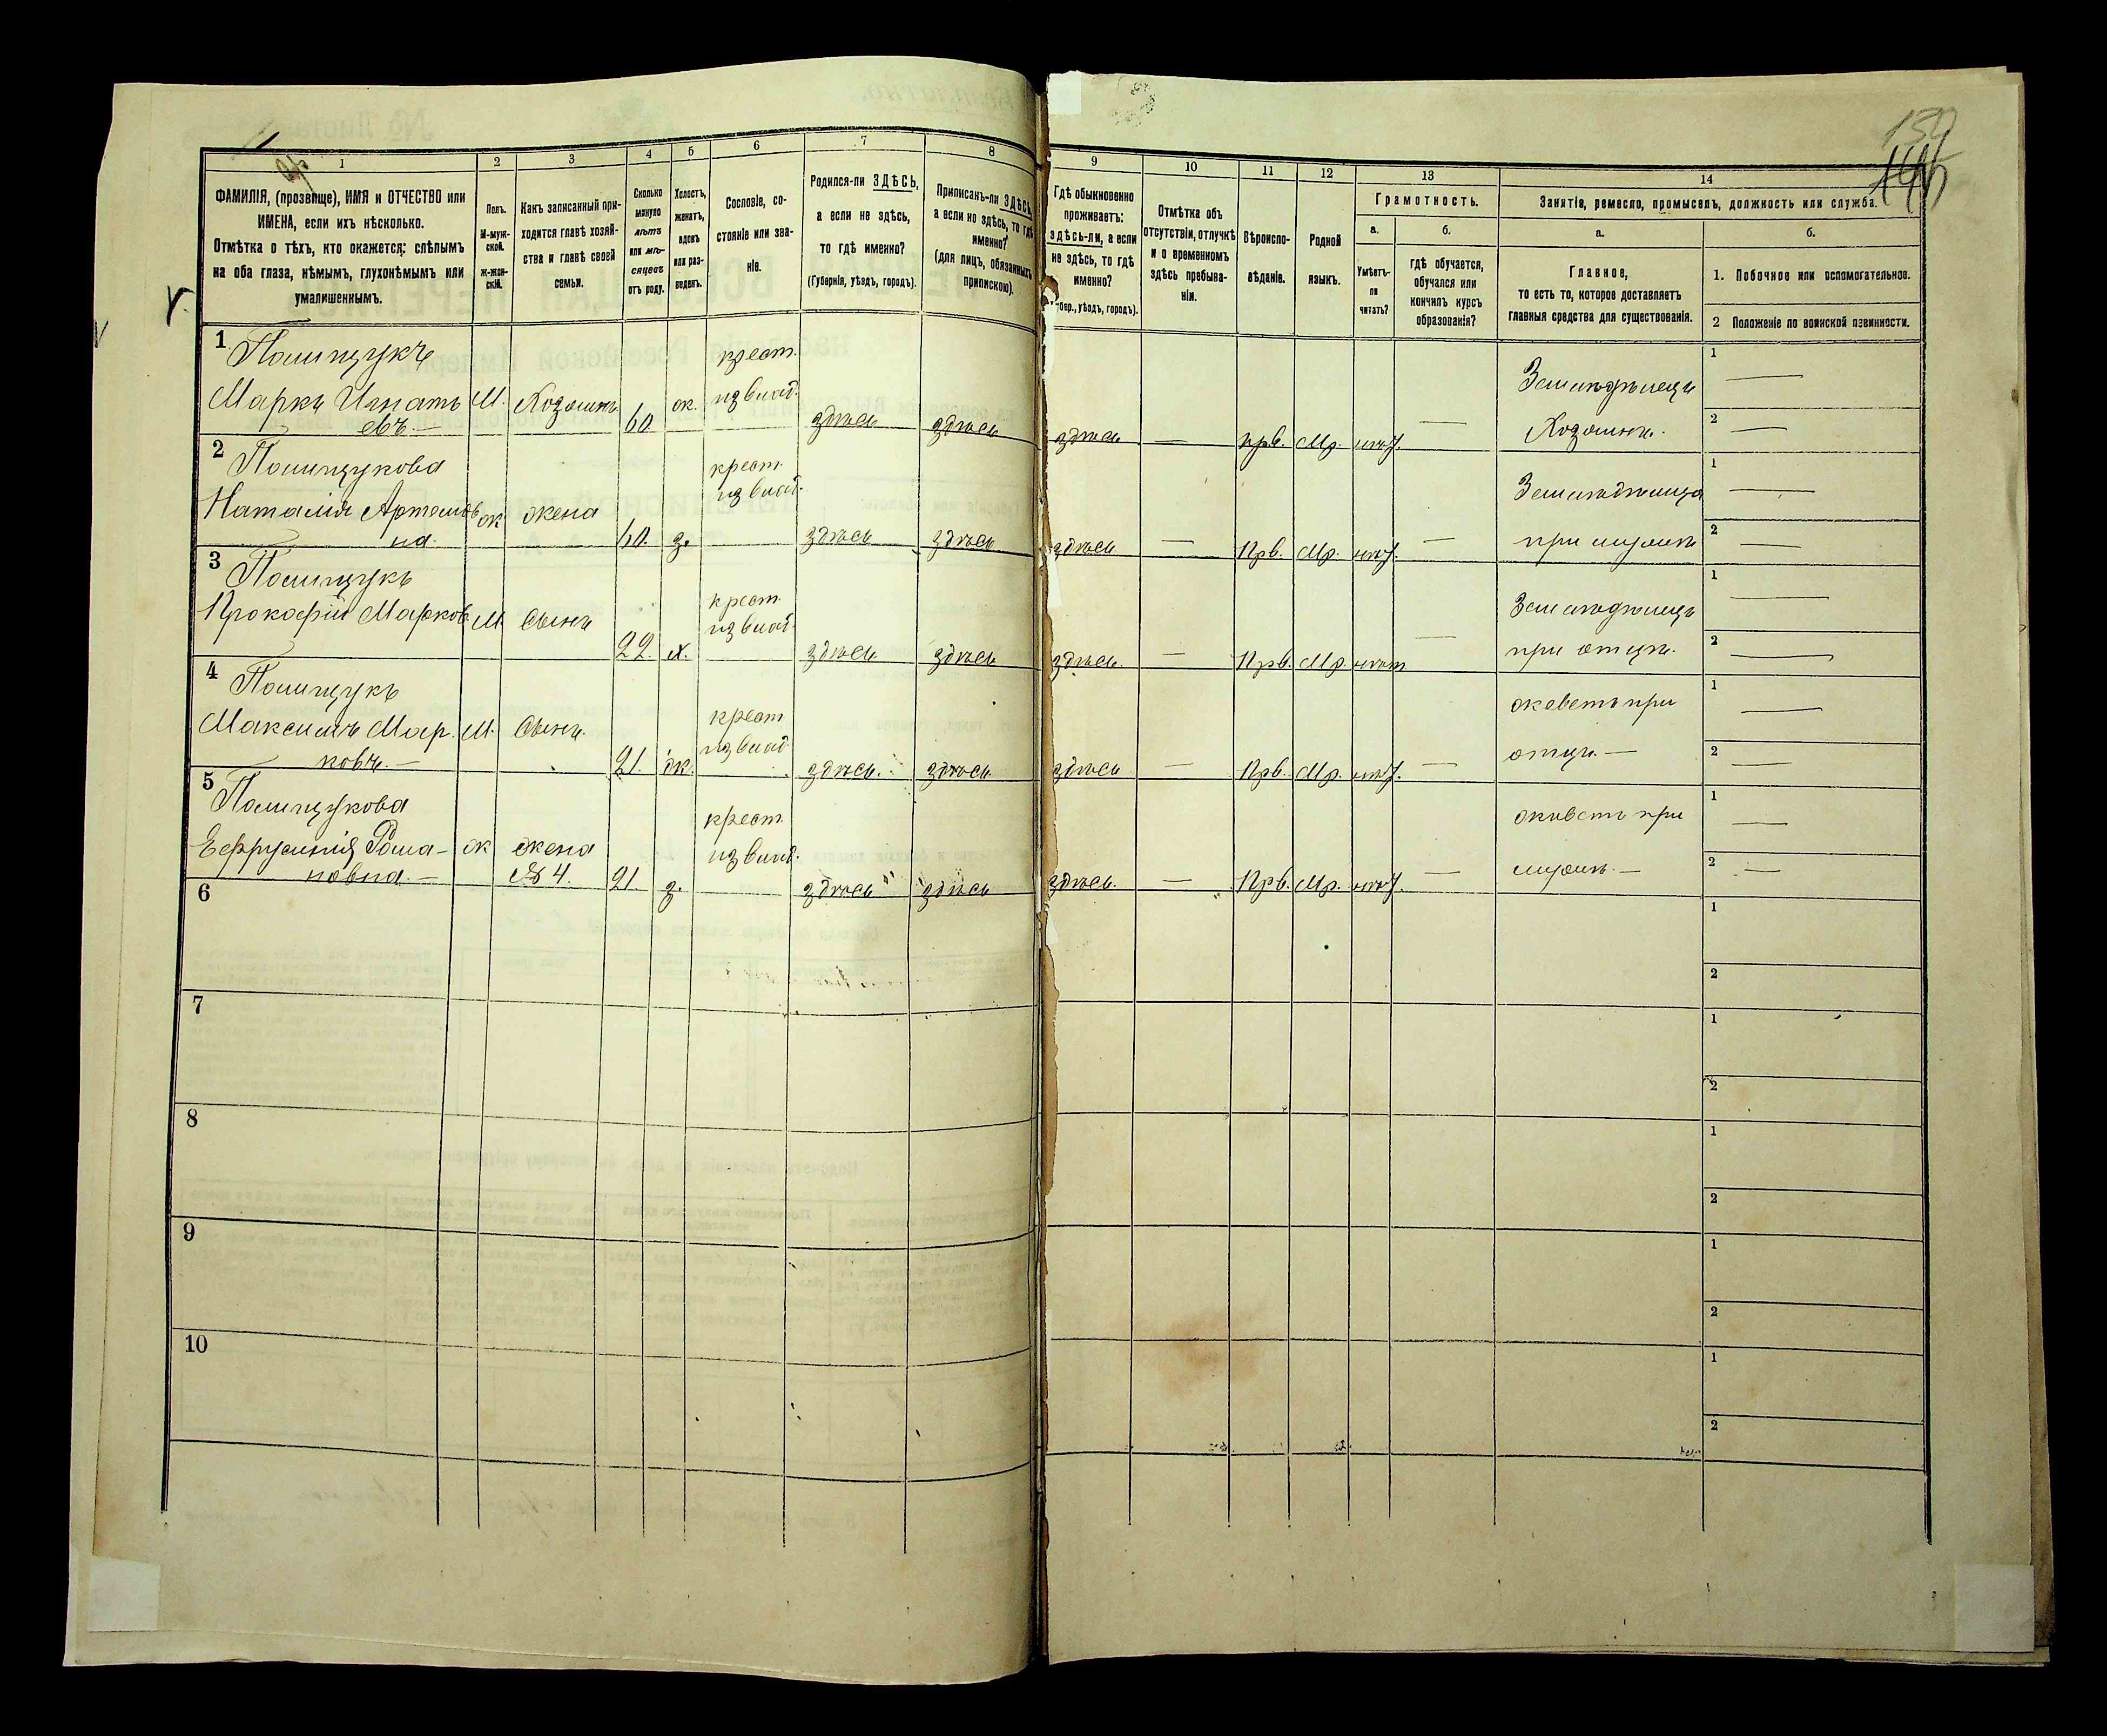 159
1 2 3 4 5 6 7 8 9 10 11 12 13 14
ФАМИЛІЯ, (прозвище), ИМЯ и ОТЧЕСТВО или
ИМЕНА, если ихъ нѣсколько.
Отмѣтка о тѣхъ, кто окажется: слѣпымъ
на оба глаза, нѣмымъ, глухонѣмымъ или
умалишеннымъ.
Полъ.
М-муж-
ской.
ж-жен-
скій.
Какъ записанный при-
ходится главѣ хозяй-
ства и главѣ своей
семьи.
Сколько
минуло
лѣтъ
или мѣ-
сяцевъ
отъ роду.
Холостъ,
женатъ,
вдовъ
или раз-
веденъ.
Сословіе, со-
стояніе или зва-
ніе.
Родился-ли ЗДѢСЬ,
а если не здѣсь,
то гдѣ именно?
(Губернія, уѣздъ, городъ).
Приписанъ-ли ЗДѢСЬ,
а если не здѣсь, то гдѣ
именно?
(для лицъ, обязанныхъ
припискою).
Гдѣ обыкновенно
проживаетъ:
здѣсь-ли, а если
не здѣсь, то гдѣ
именно?
губер., уѣздъ, городъ).
Отмѣтка объ
отсутствіи, отлучкѣ
и о временномъ
здѣсь пребыва-
ніи.
Вѣроиспо-
вѣданіе.
Родной
языкъ.
Грамотность.
а.
Умѣетъ-
ли
читать?
б.
гдѣ обучается,
обучался или
кончилъ курсъ
образованія?
Занятіе, ремесло, промыселъ, должность или служба.
а.
Главное,
то есть то, которое доставляетъ
главныя средства для существованія.
б.
1. Побочное или вспомогательное.
2 Положеніе по воинской повинности.
1 Полищукъ крест. 1
Маркъ Игнать М. Хозяинъ 60 ж. изъ влад. здѣсь здѣсь здѣсь — прв. Мр. нѣт. — Земледѣлецъ
евъ. — Хозяинъ. 2
2 Полищукова крест. 1
Наталія Артемов ж жена 60. з. изъ влад. здѣсь здѣсь здѣсь — Прв. Мр. нѣт. — Земледѣлица
на. при мужѣ 2
3 Полищукъ крест. 1
Прокофій Марков. М. Сынъ 22. х. изъ влад. здѣсь здѣсь здѣсь. — Прв. Мр. нѣт — Земледѣлецъ
при отцѣ. 2
4 Полищукъ крест. 1
Максимъ Мар. М. Сынъ. 21. ж. изъ влад. здѣсь. здѣсь здѣсь — Прв. Мр. нѣт. — живетъ при
ковъ. — отцѣ. — 2
5 Полищукова крест. 1
Ефрусинія Рома- ж жена 21. з. изъ влад. здѣсь здѣсь здѣсь. — Прв. Мр. нѣт. — живетъ при
новна. — №4. мужѣ. — 2
6 1
2
7 1
2
8 1
2
9 1
2
10 1
2